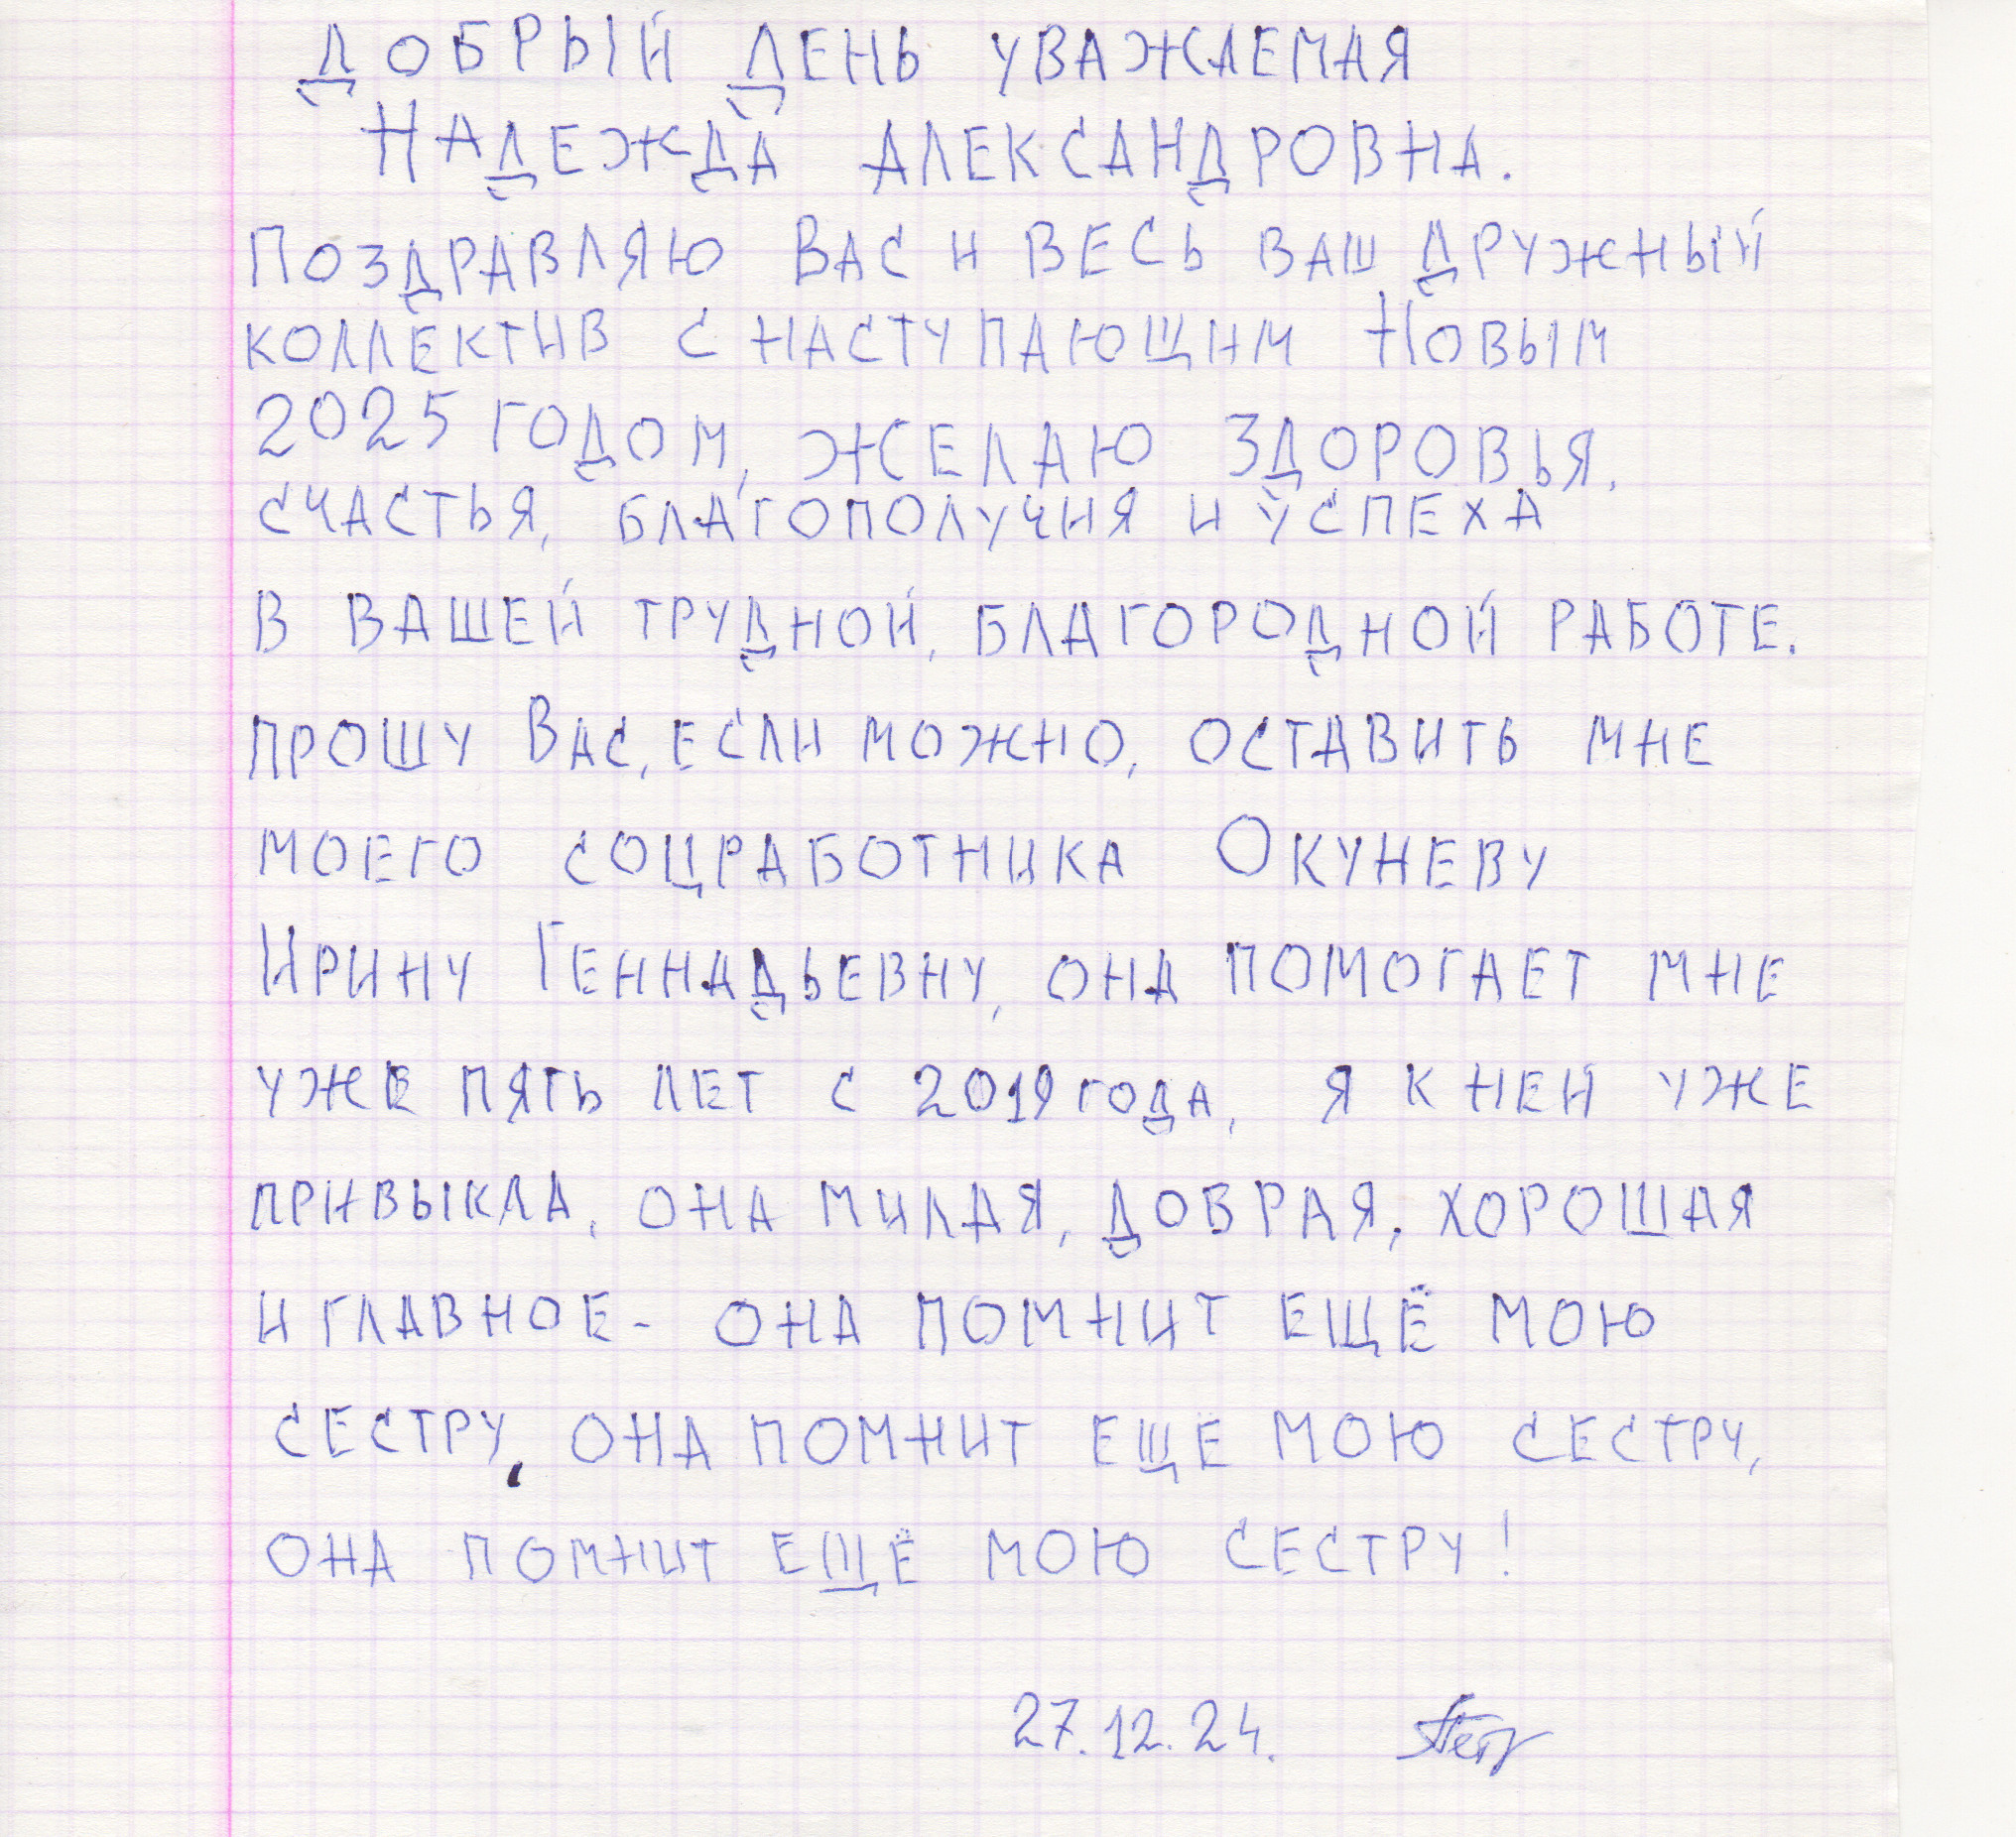 Добрый день уважаемая
Надежда Александровна.
Поздравляю Вас и весь ваш дружный
коллектив с наступающим Новым
2025 годом, желаю здоровья,
счастья, благополучия и успеха
в вашей трудной, благородной работе.
прошу Вас, если можно, оставить мне
моего соцработника Окуневу
Ирину Геннадьевну, она помогает мне
уже пять лет с 2019 года, я к ней уже
привыкла, она милая, добрая, хорошая
и главное - она помнит ещё мою
сестру, она помнит ещё мою сестру,
она помнит ещё мою сестру!
27.12.24.